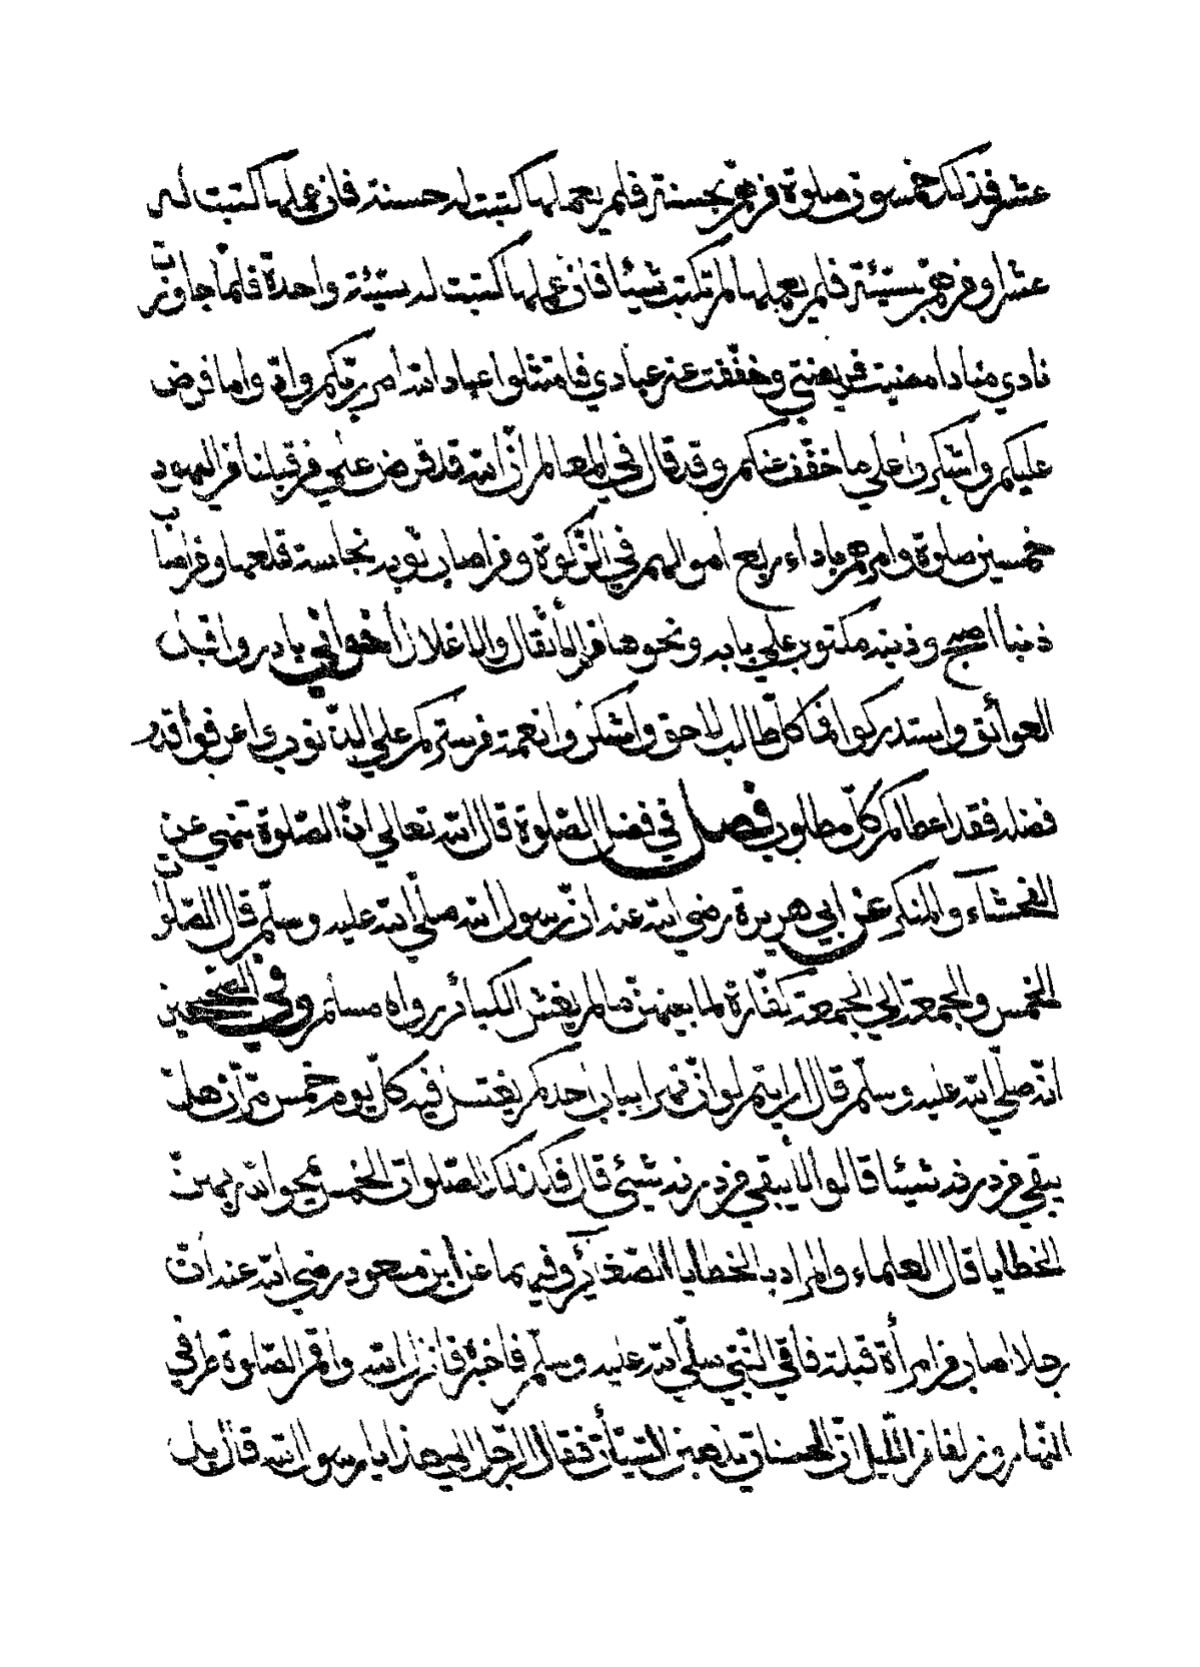 عشر فذلك خمسون صلوة فمن هم بحسنة فلم يعملها كتبت له حسنة فان عملها كتبت له
عشرا ومن هم بسيئة فلم يعملها لم تكتب شيئا فان عملها كتبت له سيئة واحدة فلما جاوزت
نادي مناد امضيت فريضتي وخففت عن عبادي فامتثلوا عباد الله امر ربكم وادوا ما فرض
عليكم واشكروا علي ما خفف عنكم وقد قال في المعالم ان الله قد فرض علي من قبلنا من اليهود
خمسين صلوة وامرهم باداء ربع اموالهم في الزكوة ومن اصاب ثوبه نجاسة قطعها ومن اصاب
ذنبا اصبح وذنبه مكتوب علي بابه ونحوها من الأثقال والاغلال في بادروا قبل
العوائق واستدركوا فما كل طالب لاحق واشكروا نعمة من ستركم علي الذنوب واعرفوا قدر
فضله فقد اعطاكم كل مطلوب فصل في فضل الصلوة قال الله تعالي ان الصلوة تنهي عن
الفحشاء والمنكر عن ابي هريرة رضي الله عنه ان رسول الله صلي الله عليه وسلم قال الصلوات
الخمس والجمعة الي الجمعة كفارة لما بينهن ما لم يغش الكبائر رواه مسلم وفي الصحيحين
انه صلي الله عليه وسلم قال ارايتم لو ان نهرا بباب احدكم يغتسل فيه كل يوم خمس مرات هل
يبقي من درنه شيئا قالوا لا يبقي من درنه شيئ قال فكذلك الصلوات الخمس يمحو الله بهن
الخطايا قال العلماء والمراد بالخطايا الصغائر وفيهما عن ابن مسعود رضي الله عنه ان
رجلا اصاب من امرأة قبلة فاتي النبي صلي الله عليه وسلم فاخبره فانزل الله واقم الصلوة طرفي
النهار وزلفا من الليل ان الحسنات يذهبن السيئات فقال الرجل الي هذا يا رسول الله قال بل